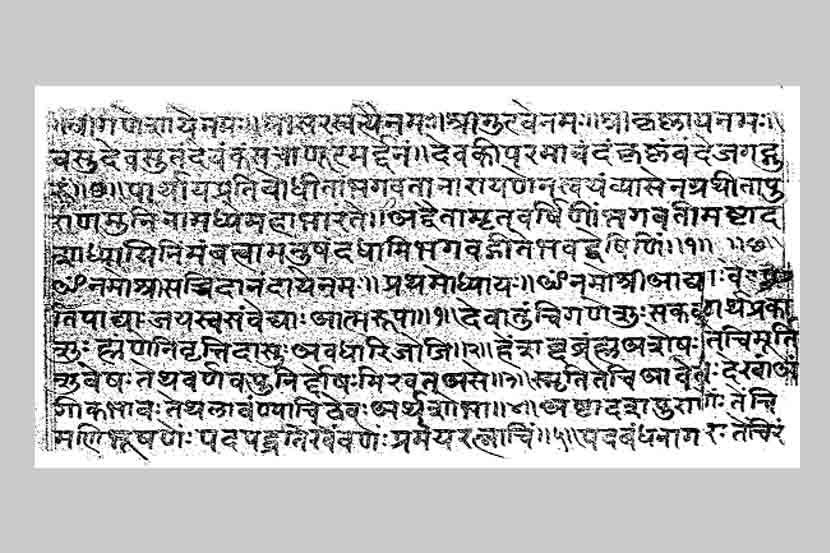 श्रीगणेशायेनमः॥ श्रीसरस्वत्यैनमः॥ श्रीगुरवेनमः॥ श्रीकृष्णायनमः॥
वसुदेवसुतंदेवंकंसचाणूरमर्दनं॥ देवकीपरमानंदंकृष्णंवंदेजगद्गु
रुं॥७॥ पार्थायप्रतिबोधीताभगवतानारायणेनस्वयंव्यासेनग्रथीतापु
राणमुनिनामध्यमहाभारते॥ अद्वैतामृतवर्षिणींभगवतीमष्टाद
शाध्यायिनिमंबत्वामनुषंदधामिभगवद्गीतेभवद्वेषिणिं॥१॥ ॥७॥
ॐनमोश्रीसच्चिदानंदायेनमः॥ प्रथमोध्यायः॥ ॐनमोश्रीआद्याः वे
तिपाद्याः जयस्वसंवेद्याः आत्मरूपा॥१॥ देवातुंचिगणेशुः सकळार्थप्रका
शुः ह्मणेनिवृत्तिदासुः अवधारिजोजि॥२॥ हेशब्दब्रंह्मअशेषः तेचिमूर्ति
सुवेषः तेथवर्णवपुनिर्दोषः मिरवतअसे॥३॥ स्मृतितेचिआवेवः देखाअं
गीकभावः तेथलावंण्याचिठेवः अर्थशोभा॥४॥ अष्टादशपुराणेः तेचि
मणिभूषणेः पदपद्धतिखेंवणेः प्रमेयरत्नाचिं॥५॥ पदबंधनागरः तेचिरं